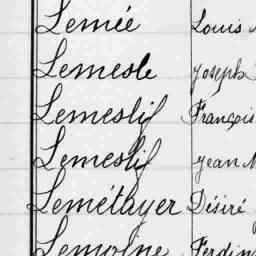 Lemée Louis
Lemesle Joseph
Lemeslif François
Lemeslif Jean M
Lemétayer Désiré
Lemoine Ferdin